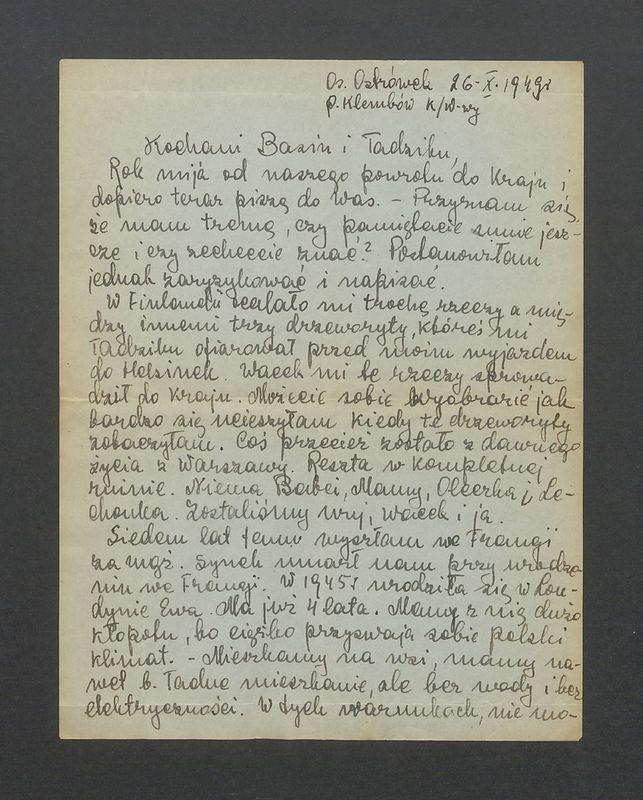 Os. Ostrówek 26-X-1949r
p. Klembów k/W-wy
Kochani Basiu i Tadziku,
Rok mija od naszego powrotu do Kraju i
dopiero teraz piszę do Was. - Przyznam się,
że mam tremę, czy pamiętacie mnie jesz-
cze i czy zechcecie znać? Postanowiłam
jednak zaryzykować i napisać.
W Finlandii ocalało mi trochę rzeczy a mię-
dzy innemi trzy drzeworyty, któreś mi
Tadziku ofiarował przed moim wyjazdem
do Helsinek. Wacek mi te rzeczy sprowa-
dził do Kraju. Możecie sobie wyobrazić jak
bardzo się ucieszyłam kiedy te drzeworyty
zobaczyłam. Coś przecież zostało z dawnego
życia z Warszawy. Reszta w kompletnej
ruinie. Niema Babci, Mamy, Olecka i Le-
chonka. Zostaliśmy wuj, Wacek i ja.
Siedem lat temu wyszłam we Francji
za mąż. Synek umarł nam przy urodze-
niu we Francji. W 1945r urodziła się w Lon-
dynie Ewa. Ma już 4 lata. Mamy z nią dużo
kłopotu, bo ciężko przyswaja sobie polski
klimat. - Mieszkamy na wsi, mamy na-
wet b. ładne mieszkanie, ale bez wody i bez
elektryczności. W tych warunkach, nie mo-